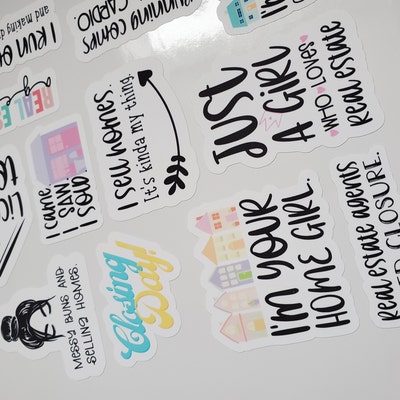 I RUN O
and making d
RUNNING COMPS
CARDIO.
REAL ES
I CAME
I SAW
I SOLD
I sell homes.
It's kinda my thing.
JUST
A GIRL
WHO LOVES
Real estate
LIC
to
MESSY BUNS AND
SELLING HOMES.
Closing
Day!
I'm YOUR
HOME GIRL.
Real estate agents
CLOSURE.